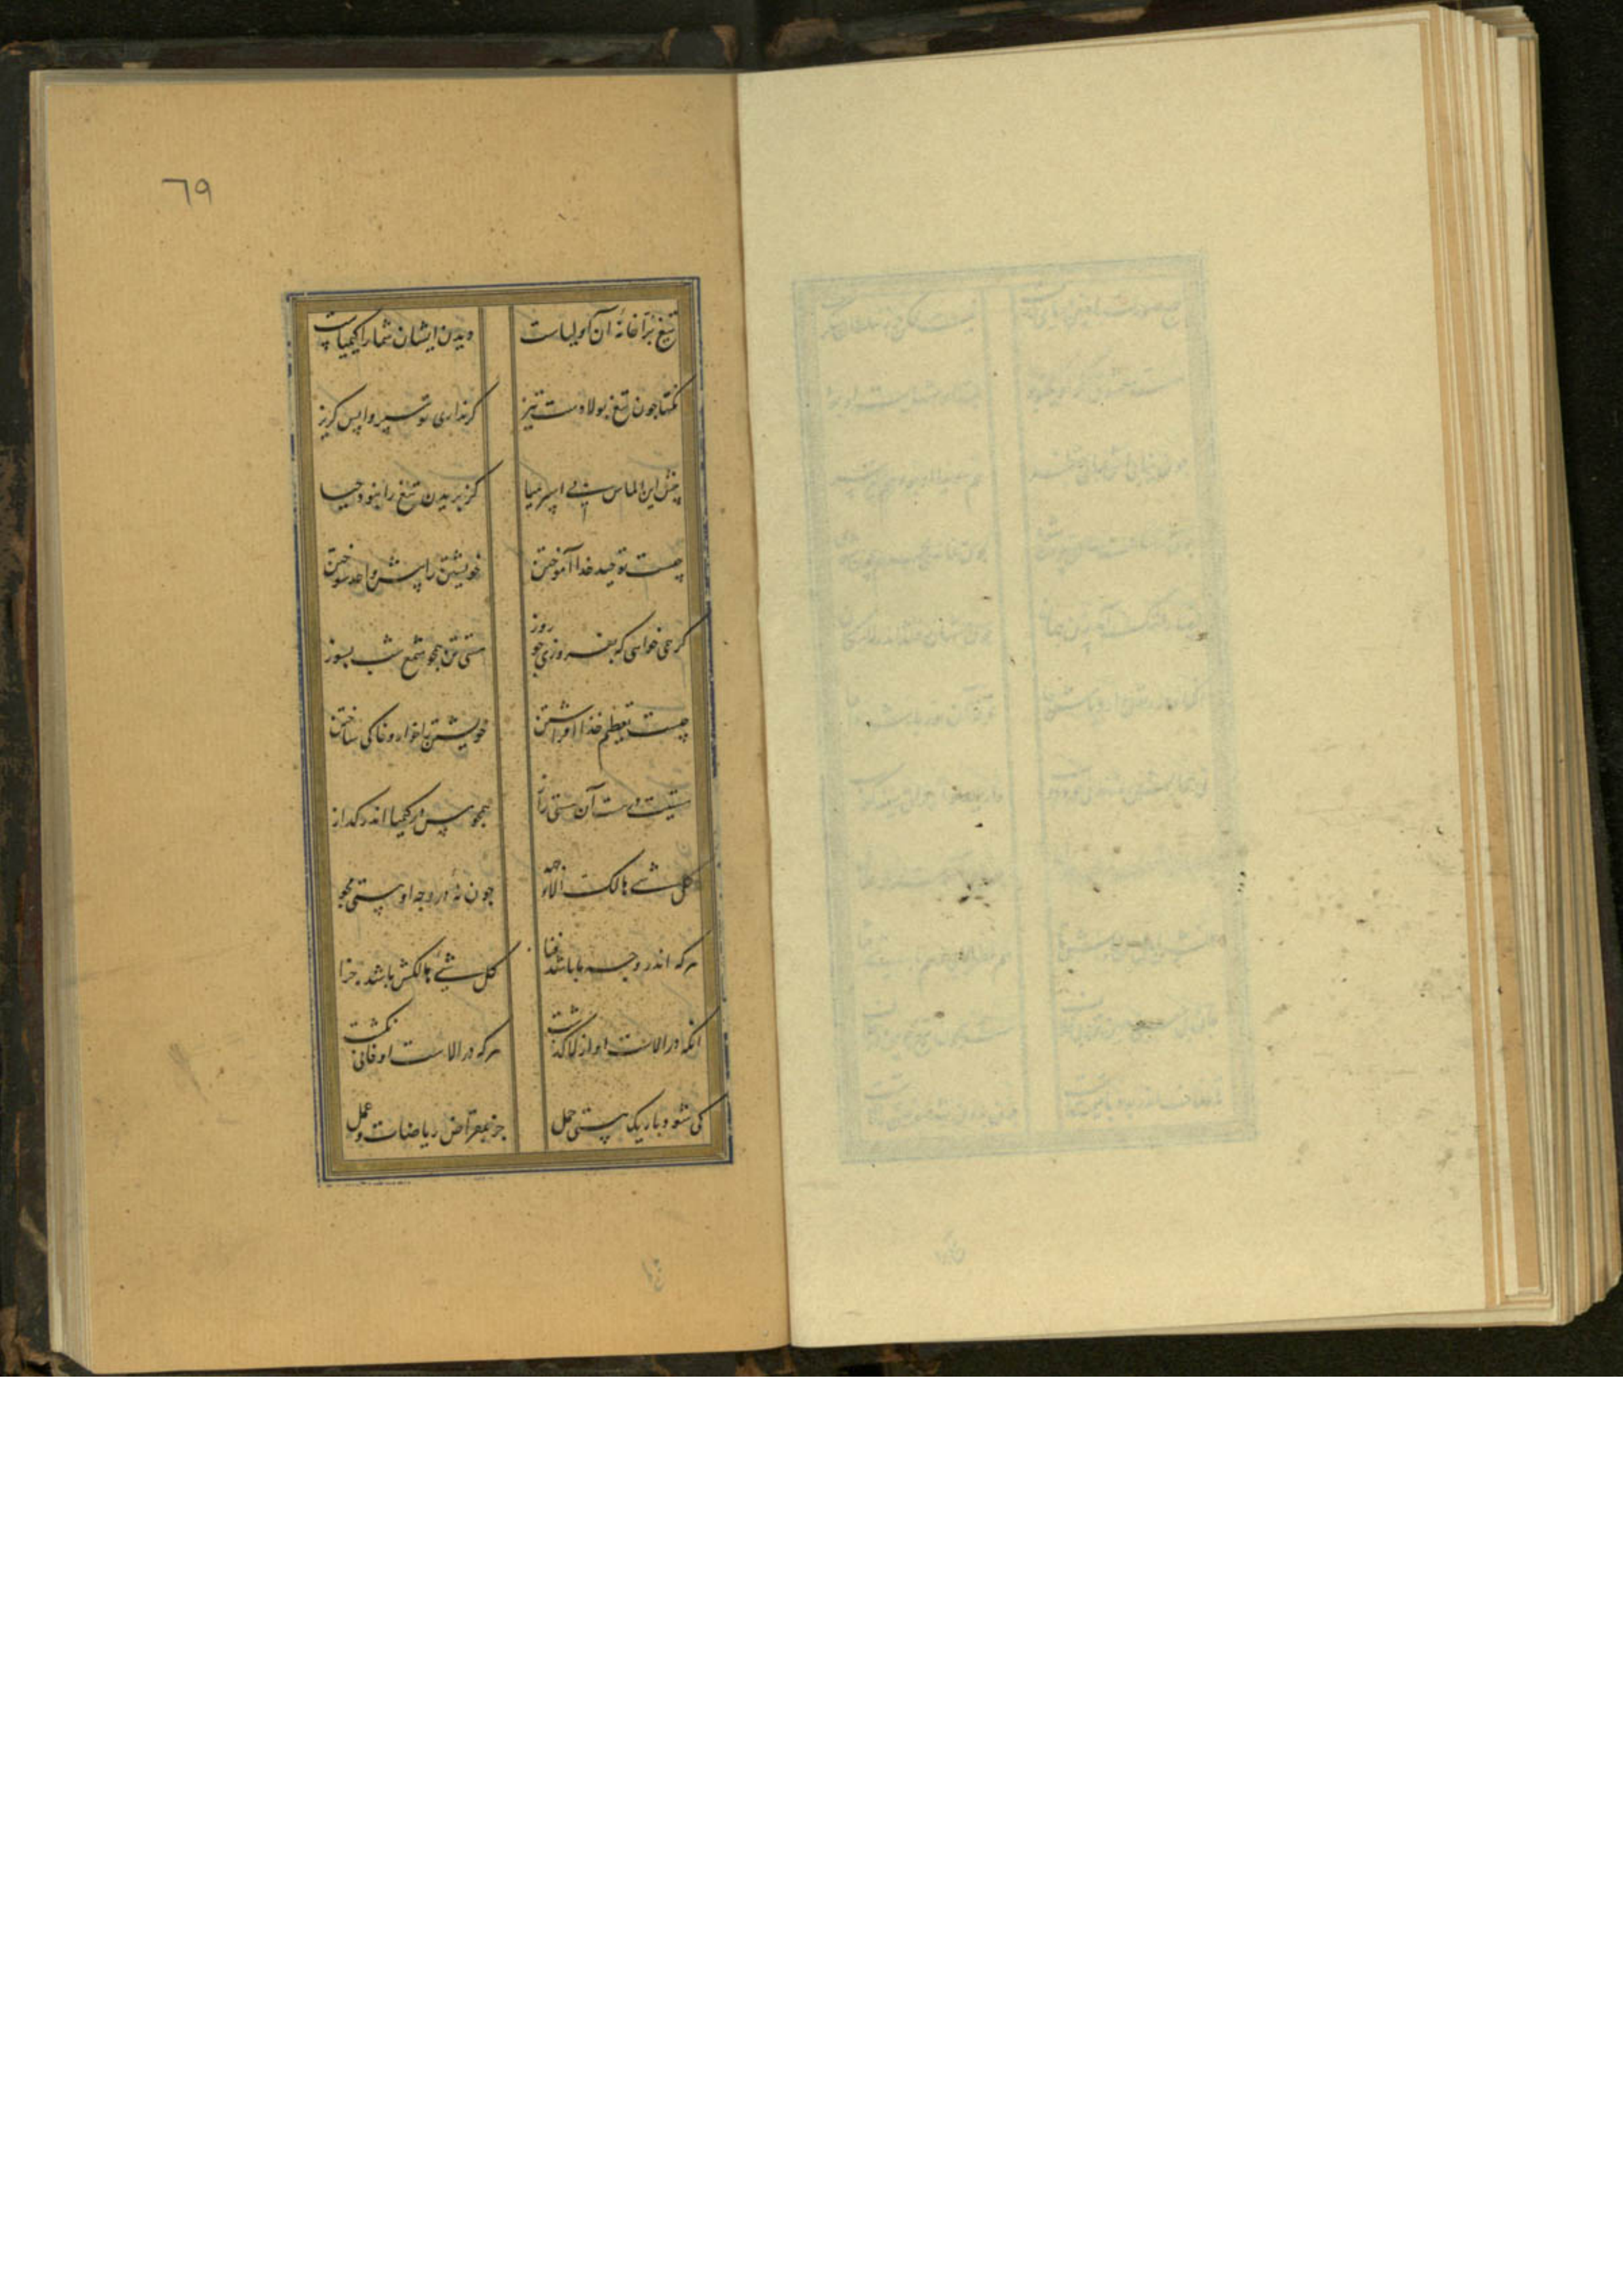 ٦٩
تیغ در زرادخانهٔ آن اولیاست دیدن ایشان شمارا کیمیاست
نکتها چون تیغ پولادست تیز کر نداری تو سپر واپس کریز
پیش این الماس بی اسپر میا کز بریدن تیغ را نبود حیا
چیست توحید خدا آموختن خویشتن را پیش واحد سوختن
کر همی خواهی که بفروزی چو روز هستی تن همچو شمع شب بسوز
چیست تعظیم خدا افراشتن خویشتن را خوار و خاکی ساختن
هستیت در هست آن هستی نواز همچو مس در کیمیا اندر کداز
کل شئ هالک الا وجهه چون نهٔ در وجه او هستی مجو
هرکه اندر وجه ما باشد فنا کل شئ هالکش باشد جزا
انکه در الاست او از لا کذشت هرکه در الاست او فانی نکشت
کی شود باریک هستی جمل جز بمقراض ریاضات و عمل